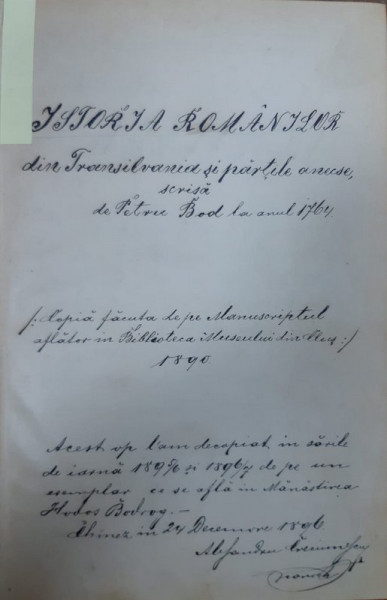 ISTORIA ROMÂNILOR
din Transilvania și părțile anecse,
scrisă
de Petru Bod la anul 1764.
/: Copiă făcuta de pe Manuscriptul
aflător in Biblioteca Museului din Cluj :/
1890
Acest op l'am decopiat in sările
de iarnă și de pe un
esemplar ce se află in Mănăstirea
Hodoș Bodrog. —
in 24 Decemvre 1896
Alesandru